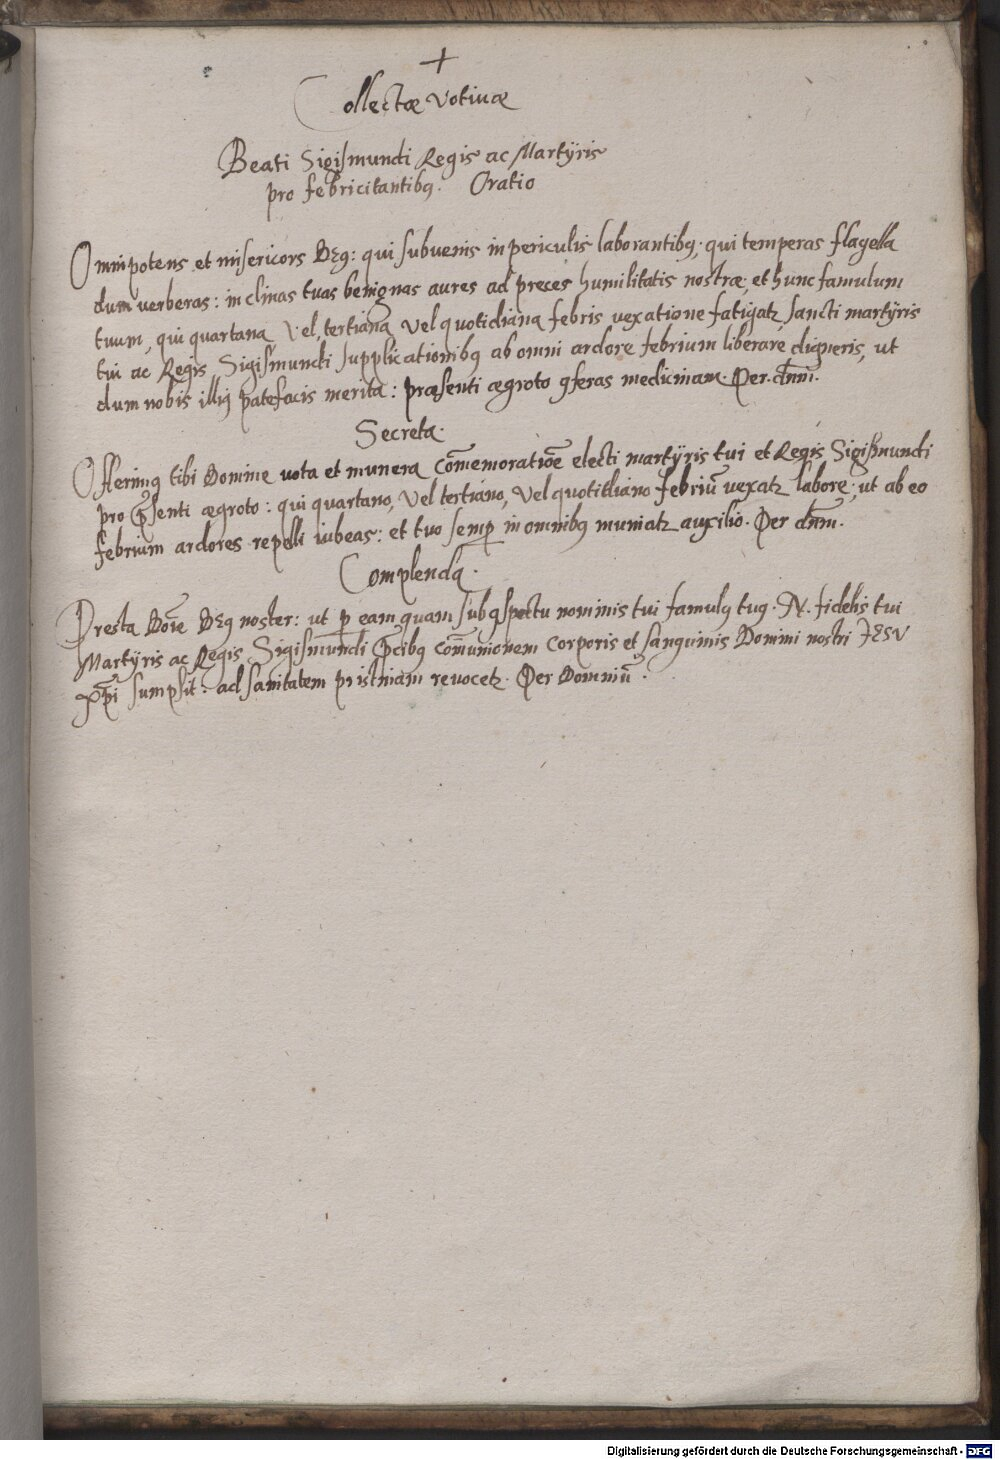 +
Collectæ votiuæ
Beati Sigiſmundi Regis ac Martÿris
pro febricitantibꝯ. Oratio
Omnipotens et miſericors Deꝯ: qui ſubuenis in periculis laborantibꝯ: qui temperas flagella
dum verberas: inclinas tuas benignas aures ad preces humilitatis noſtræ: et hunc famulum
tuum, qui quartana, vel, tertiana, vel quotidiana febris vexatione fatigatꝛ, ſancti martÿris
tui ac Regis Sigiſmundi ſupplicationibꝯ ab omni ardore febrium liberare digneris, ut
dum nobis illiꝯ patefacis merita: præſenti ægroto ꝯferas medicinam. Per. dn̄m.
Secreta.
Offerimꝯ tibi Domine vota et munera com̄emoratiōe electi martÿris tui et Regis Sigiſmundi
pro p̄ſenti ægroto: qui quartano, vel tertiano, vel quotidiano febriū vexatꝛ labore: ut ab eo
febrium ardores repelli iubeas: et tuo ſemꝑ in omnibꝯ muniatꝛ auxilio. Per dn̄m.
Complenda.
Preſta Dōie Deꝯ noſter: ut ꝑ eam quam ſub ꝯſpectu nominis tui famulꝯ tuꝯ. N. fidelis tui
Martÿris ac Regis Sigiſmundi p̄cibꝯ com̄unionem corporis et ſanguinis Domini noſtri IESV
xp̄i ſumpſit: ad ſanitatem priſtinam reuocetꝛ. Per Dominū.
Digitalisierung gefördert durch die Deutsche Forschungsgemeinschaft - DFG